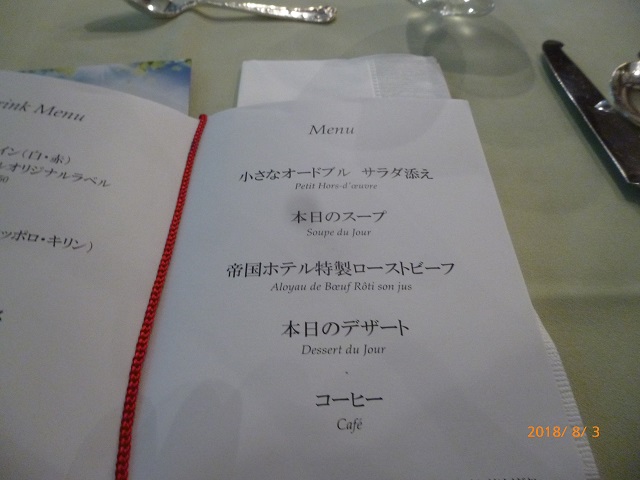 rink Menu
イン(白・赤)
レオリジナルラベル
50
ッポロ・キリン)
Menu
小さなオードブル サラダ添え
Petit Hors-d'œuvre
本日のスープ
Soupe du Jour
帝国ホテル特製ローストビーフ
Aloyau de Bœuf Rôti son jus
本日のデザート
Dessert du Jour
コーヒー
Café
2018/ 8/ 3